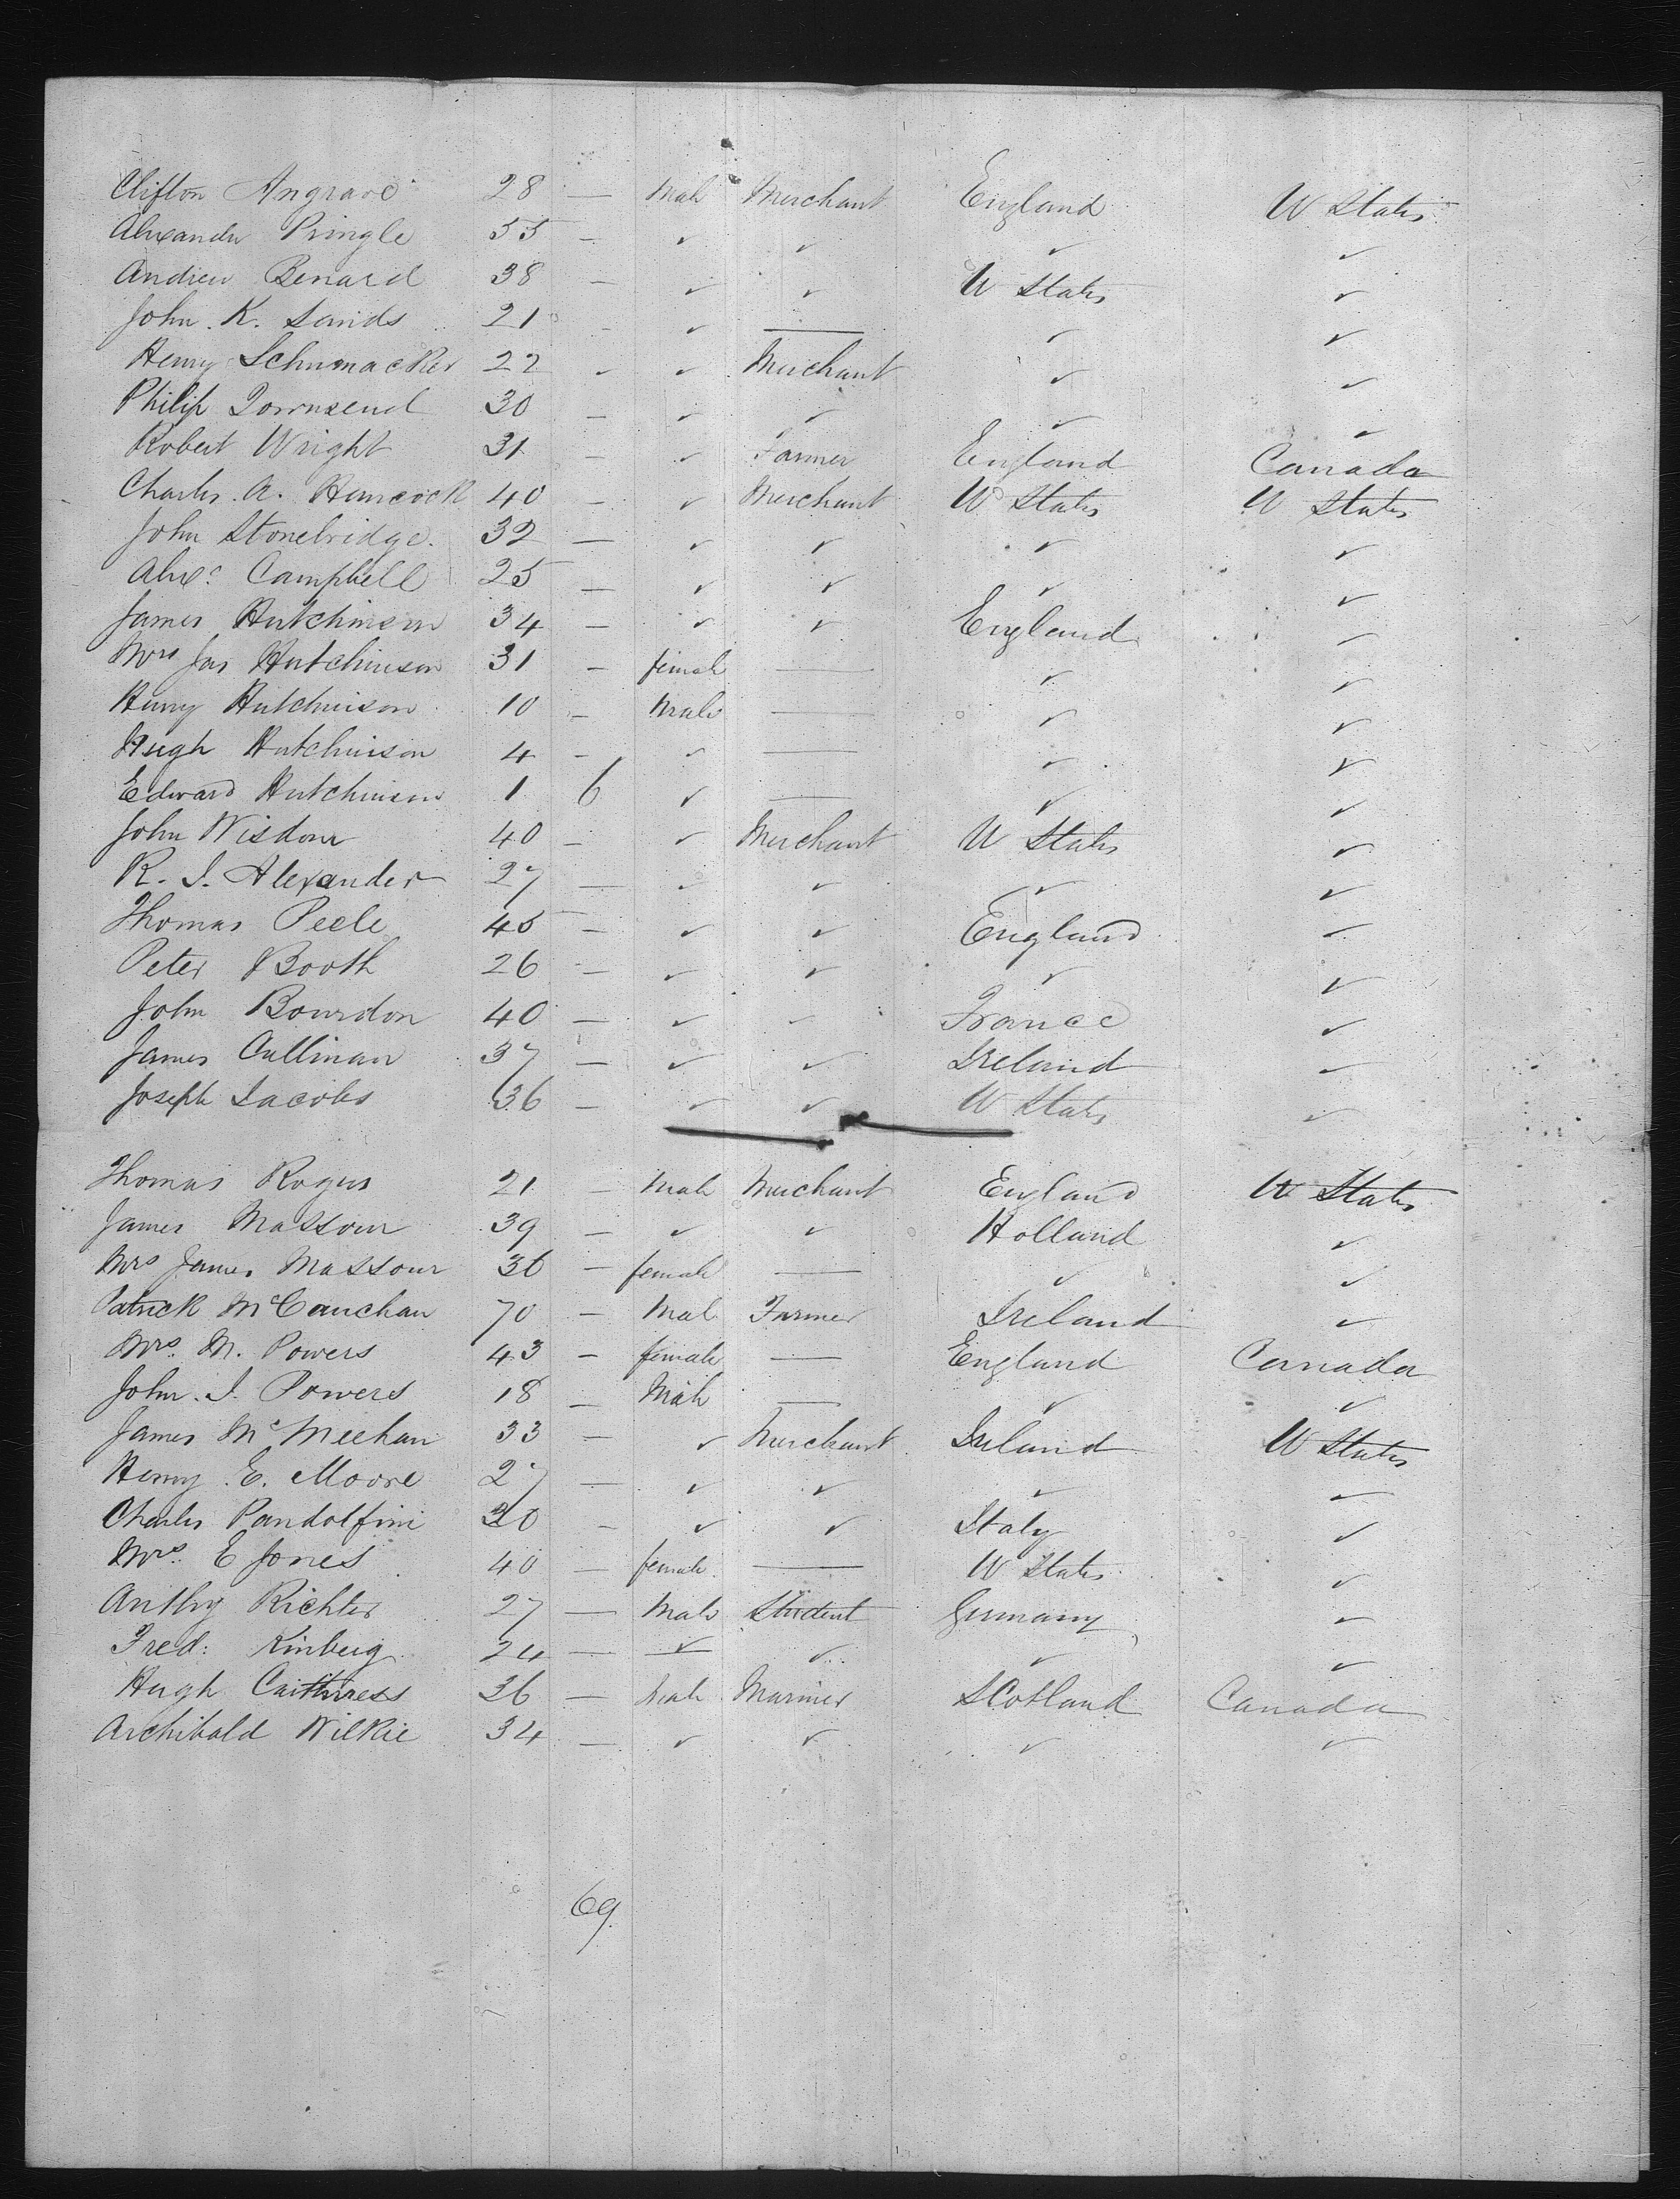 Clifton Angrave 28 — Male Merchant England U States
Alexander Pringle 55 — ✓ ✓ ✓ ✓
Andrew Benard 38 — ✓ ✓ U States ✓
John K. Sands 21 - ✓ — ✓ ✓
Henry Schumacker 22 - ✓ Merchant ✓ ✓
Philip Townsend 30 — ✓ ✓ ✓ ✓
Robert Wright 31 — ✓ Farmer England Canada
Charles A. Hancock 40 — ✓ Merchant U States U States
John Stonebridge 32 — ✓ ✓ ✓ ✓
Alexr Campbell 25 — ✓ ✓ ✓ ✓
James Hutchinson 34 — ✓ ✓ England ✓
Mrs Jas Hutchinson 31 — female — ✓ ✓
Henry Hutchinson 10 — Male — ✓ ✓
Hugh Hutchinson 4 — ✓ — ✓ ✓
Edward Hutchinson 1 6 ✓ — ✓ ✓
John Wisdom 40 — ✓ Merchant U States ✓
R. J. Alexander 27 — ✓ ✓ ✓ ✓
Thomas Peele 45 — ✓ ✓ England ✓
Peter Booth 26 — ✓ ✓ ✓ ✓
John Bourdon 40 — ✓ ✓ France ✓
James Cullinan 37 — ✓ ✓ Ireland ✓
Joseph Jacobs 36 — ✓ ✓ U States ✓
Thomas Rogers 21 — Male Merchant England U States
James Massour 39 — ✓ ✓ Holland ✓
Mrs James Massour 36 — female — ✓ ✓
Patrick McCauchan 70 — Male Farmer Ireland ✓
Mrs. M. Powers 43 — female — England Canada
John J. Powers 18 — Male — ✓ ✓
James McMeehan 33 — ✓ Merchant Ireland U States
Henry E. Moore 27 — ✓ ✓ ✓ ✓
Charles Pandolfini 30 — ✓ ✓ Italy ✓
Mrs. E Jones 40 — female — U States ✓
Anthy Richter 27 — Male Student Germany ✓
Fred: Kinberg 24 — ✓ ✓ ✓ ✓
Hugh Caithness 36 — Male Mariner Scotland Canada
Archibald Wilkie 34 — ✓ ✓ ✓ ✓
69